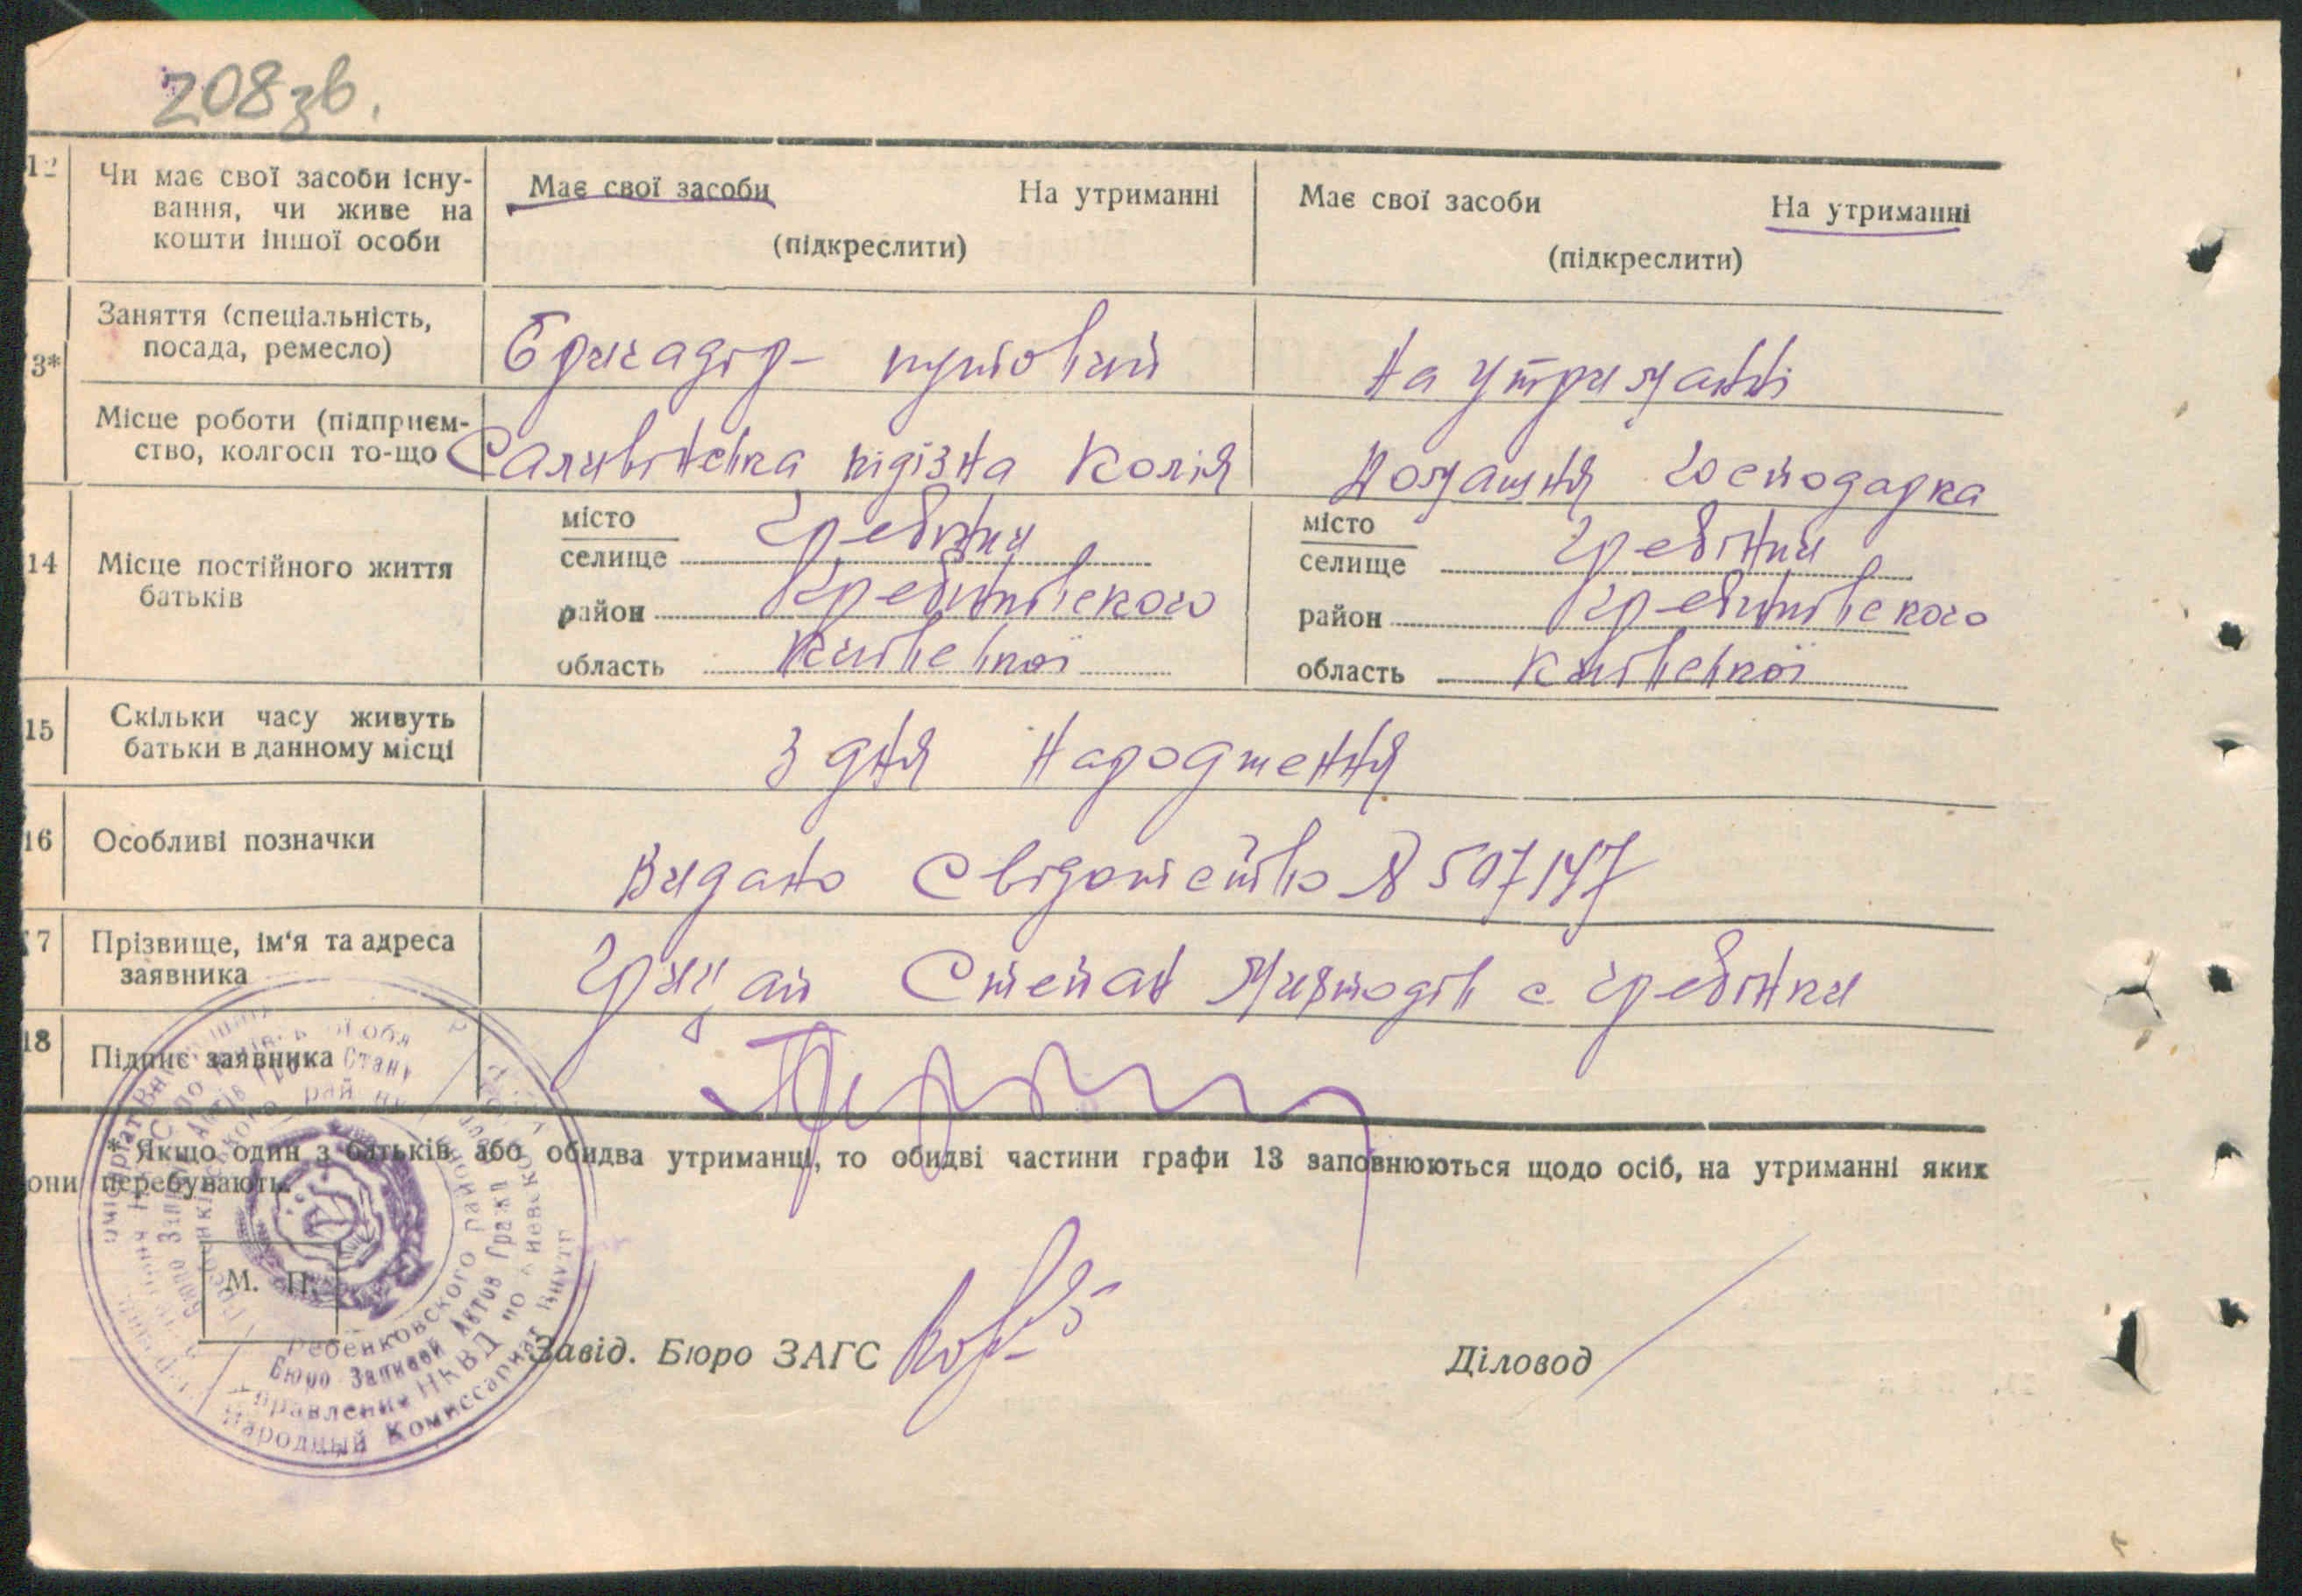 208 зв.
12 Чи має свої засоби існу- Має свої засоби На утриманні Має свої засоби На утриманні
вання, чи живе на
кошти іншої особи (підкреслити) (підкреслити)
Заняття (спеціальність, Бригадір путовий На утриманні
3* посада, ремесло)
Місце роботи (підприєм-
ство, колгосп то-що Саливінська підізна колія Домашня господарка
місто Гребінки місто Гребінки
14 Місце постійного життя селище селище
батьків район Гребінківского район Гребінківского
область Київської область Київської
15 Скільки часу живуть з дня народження
батьки в данному місці
16 Особливі позначки Видано свідотство № 507147
17 Прізвище, ім'я та адреса Грицай Степан с Гребінки
заявника
18 Підпис заявника
* Якщо один з батьків або обидва утриманці, то обидві частини графи 13 заповнюються щодо осіб, на утриманні яких
они перебувають.
М. П.
Завід. Бюро ЗАГС Діловод
Ребенковского района
Бюро Записей Актов Граж
Управления НКВД по Киевской
Народный Комиссариат Внутр